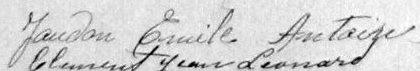 Jaudon Emile Antoine
Clement Jean Leonard